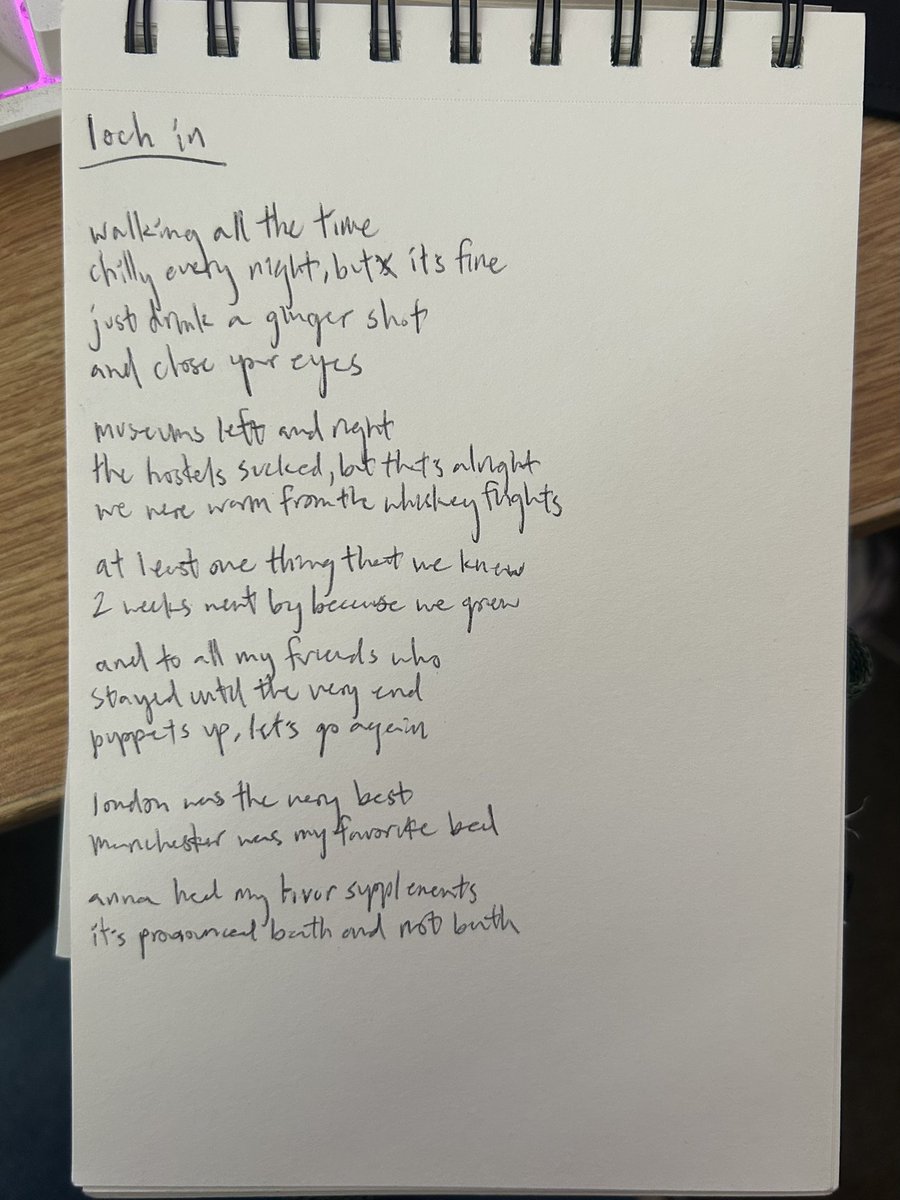 loch in
walking all the time
chilly every night, but it's fine
just drink a ginger shot
and close your eyes
museums left and right
the hostels sucked, but that's alright
we were warm from the whiskey flights
at least one thing that we knew
2 weeks went by because we grew
and to all my friends who
stayed until the very end
puppets up, let's go again
london was the very best
manchester was my favorite bed
anna had my liver supplements
it's pronounced bath and not bath